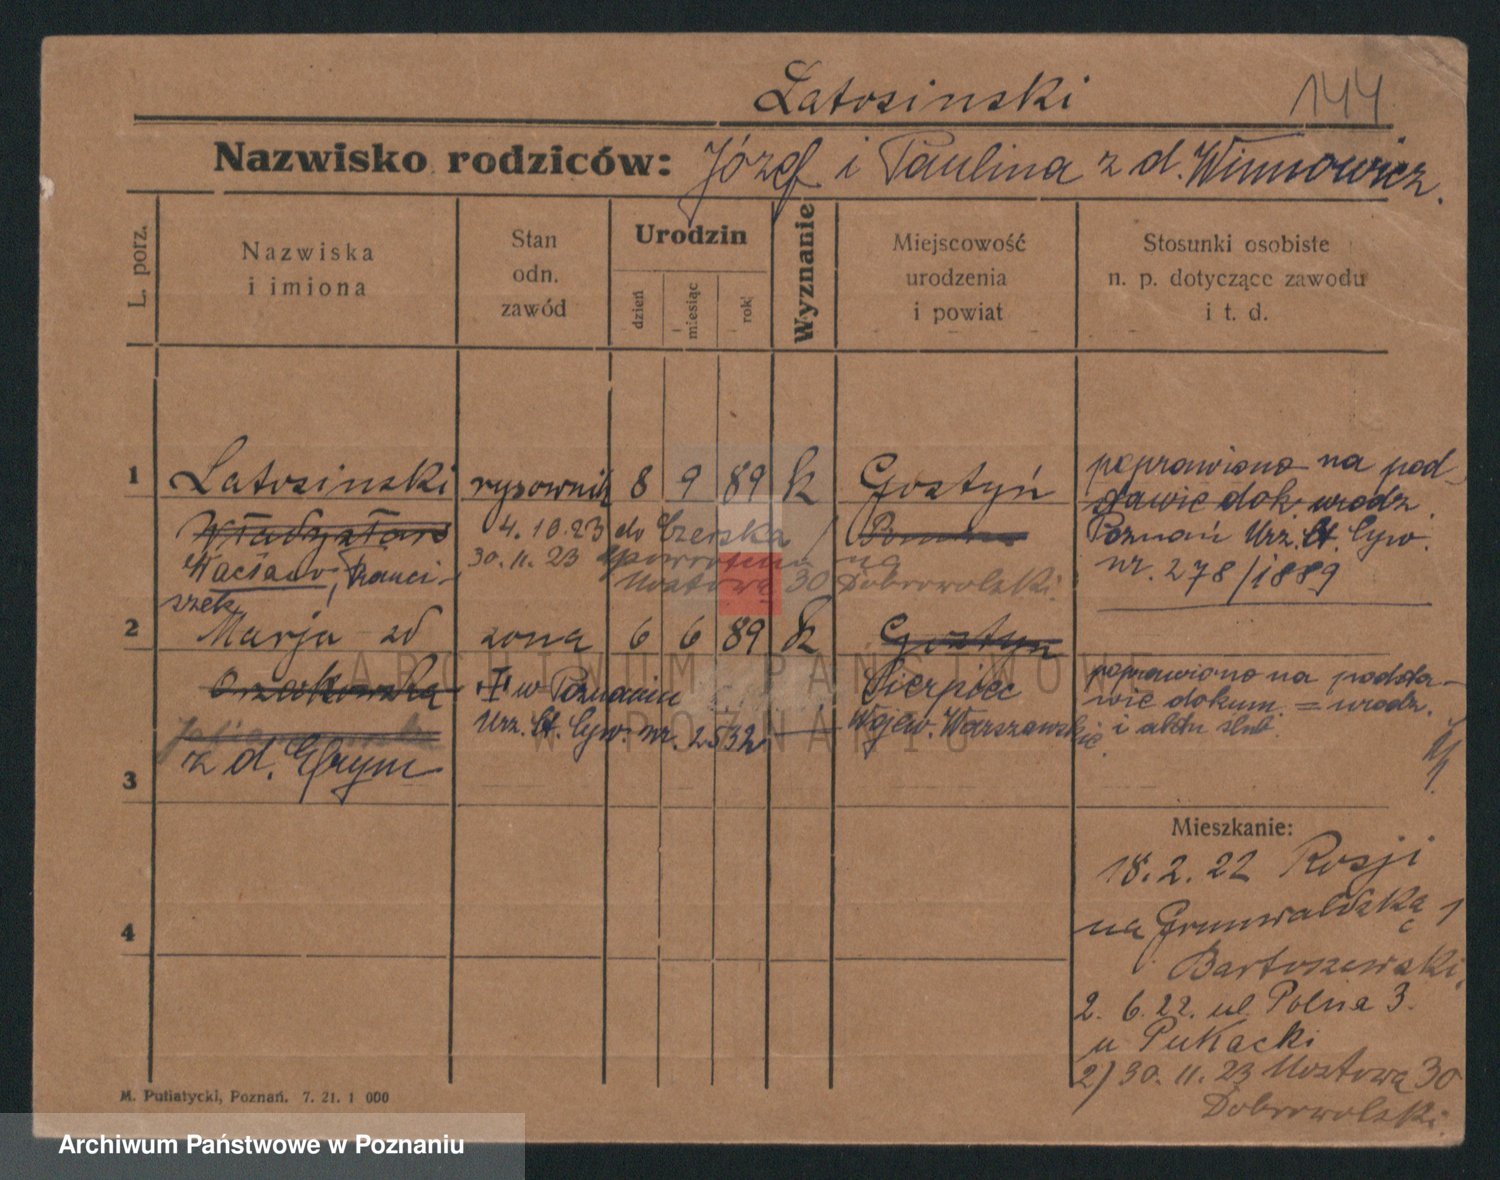 Latosinski 144
Nazwisko rodziców: Józef i Paulina z d. Winnowicz.
L. porz.
Nazwiska
i imiona
Stan
odn.
zawód
Urodzin
dzień
miesiąc
rok
Wyznanie
Miejscowość
urodzenia
i powiat
Stosunki osobiste
n. p. dotyczące zawodu
i t. d.
1 Latosinski rysownik 8 9 89 k Gostyń
Władysław
Wacław, Franci-
szek
4. 10. 23 do Czerska
30. 11. 23 spowrotem na
Mostową 30 Dobrowolski.
poprawiono na pod-
stawie dok. urodz.
Poznań Urz. St. Cyw.
nr. 278/1889
2 Marja zd żona 6 6 89 k Gostyn
Orzarkowska
z d. Grym
w Poznaniu
Urz. St. Cyw. nr. 2532
Sierpiec
Wojew. Warszawskie.
poprawiono na podsta-
wie dokum. = urodz.
i aktu ślub.
3
4
Mieszkanie:
18. 2. 22 Rosji
na Grunwaldzką 1
Bartoszewski
2. 6. 22. ul. Polna 3.
u Pukacki
2) 30. 11. 23 Mostowa 30
Dobrowolski.
M. Putiatycki, Poznań. 7. 21. 1 000
ARCHIWUM PAŃSTWOWE
W POZNANIU
Archiwum Państwowe w Poznaniu